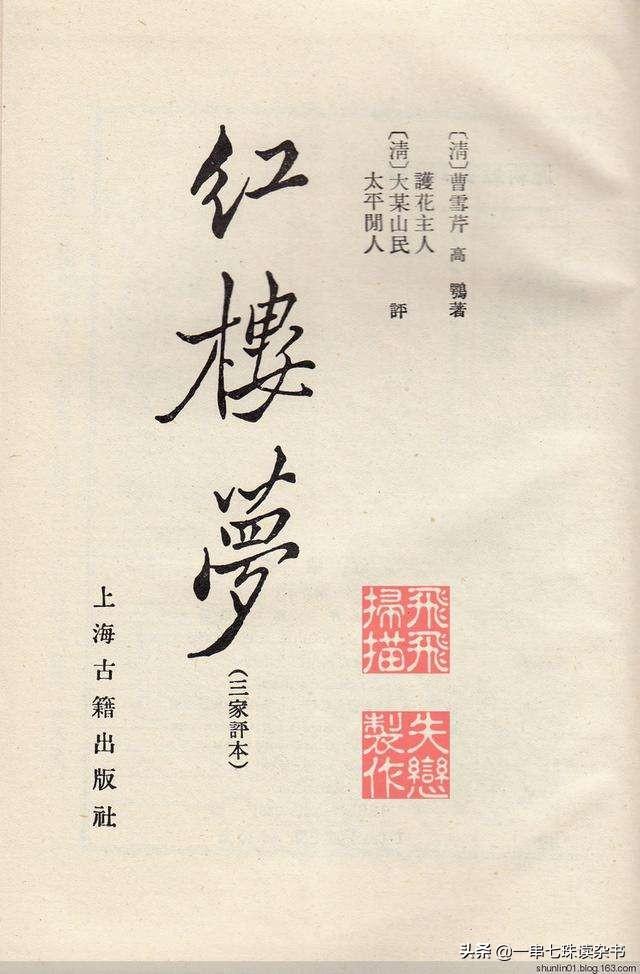 〔清〕曹雪芹 高 鶚著
護花主人
〔清〕大某山民 評
太平閒人
红樓夢
(三家評本)
上海古籍出版社
飛飛
掃描
失戀
製作
头条 @一串七珠读杂书
shunlin01.blog.163.com